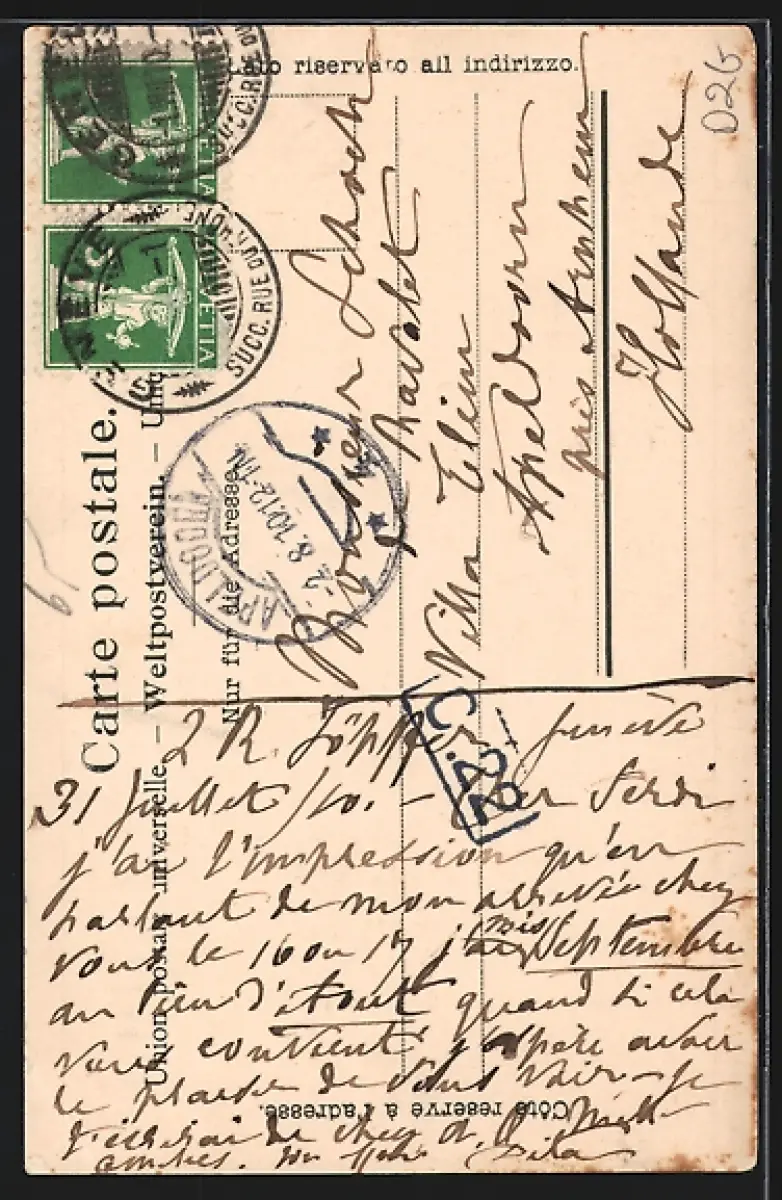 Lato riservato all' indirizzo.
Carte postale.
Union postale universelle. – Weltpostverein. –
Nur für die Adresse.
Côté réservé à l'adresse.
D26
HELVETIA
HELVETIA
GENÈVE
SUCC. RUE DU RHÔNE
GENÈVE
SUCC. RUE DU RHÔNE
APELDOORN
-2.8.10.12-1N.
C.22
Monsieur Schoch
Ravalet
Villa Elim
Apeldoorn
près Arnhem
Hollande
2 R. Töpffer Genève
31 Juillet/10. – Cher Ferdi
j'ai l'impression qu'en
parlant de mon arrivée chez
vous le 16 ou 17 j'ai mis Septembre
au lieu d'Août quand si cela
vous convient j'espère avoir
le plaisir de vous voir – Je
de chez